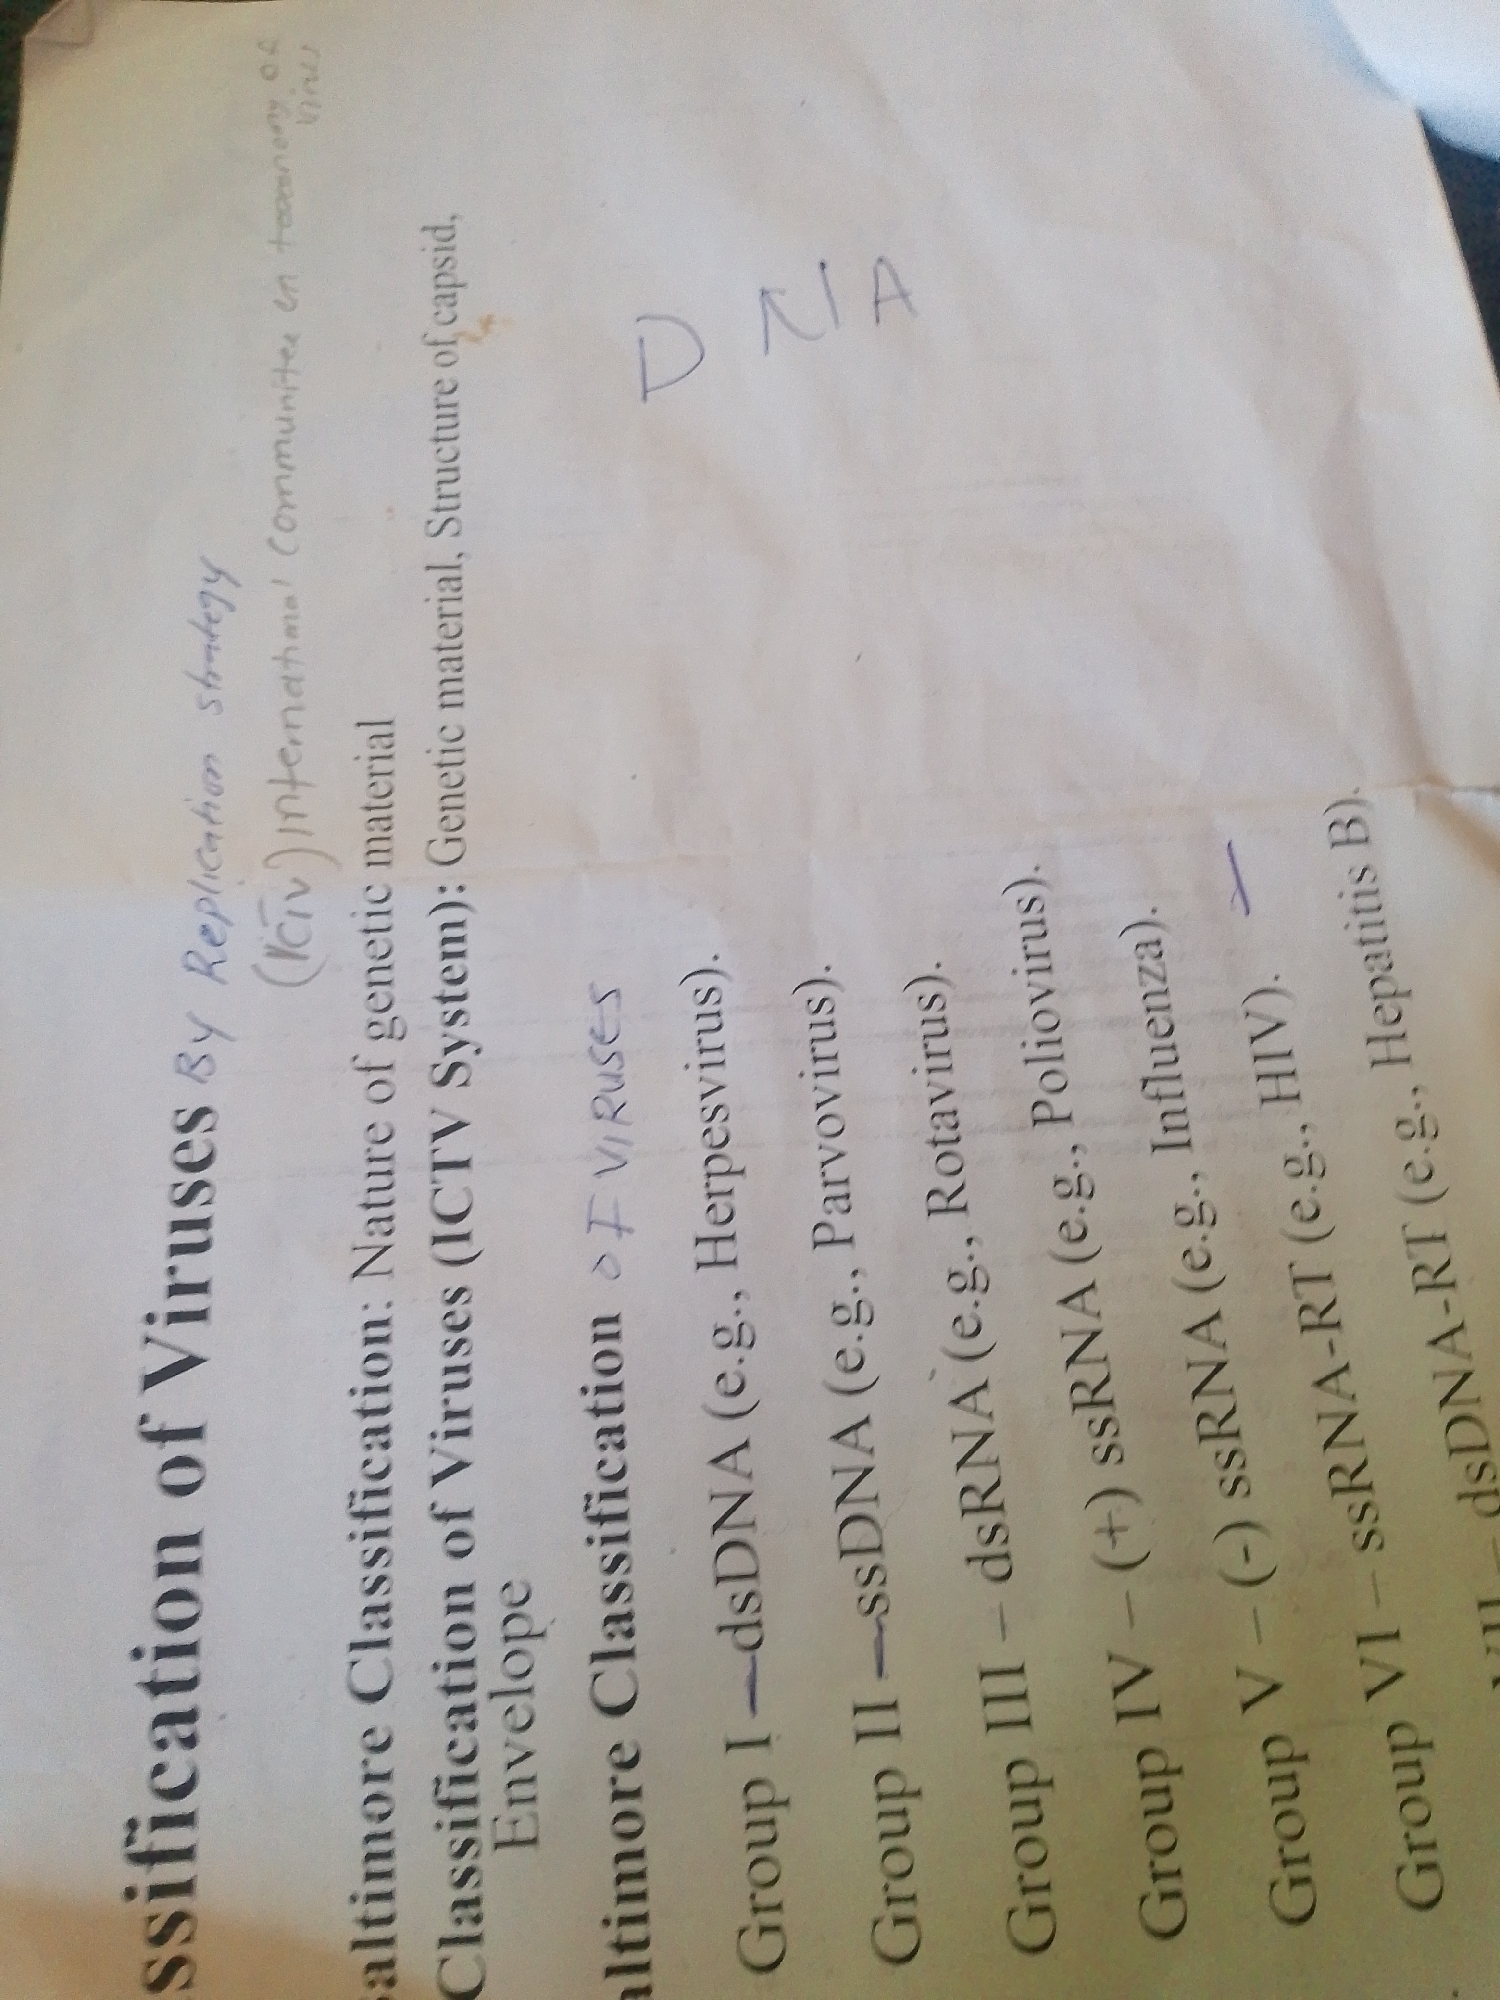 ssification of Viruses By Replication strategy
(ICTV) International Communitee in taxonomy of
virus
altimore Classification: Nature of genetic material
Classification of Viruses (ICTV System): Genetic material, Structure of capsid,
Envelope
altimore Classification OF VIRUSES
DNA
Group I — dsDNA (e.g., Herpesvirus).
Group II — ssDNA (e.g., Parvovirus).
Group III – dsRNA (e.g., Rotavirus).
Group IV – (+) ssRNA (e.g., Poliovirus).
Group V – (-) ssRNA (e.g., Influenza).
Group VI – ssRNA-RT (e.g., HIV).
VII – dsDNA-RT (e.g., Hepatitis B).